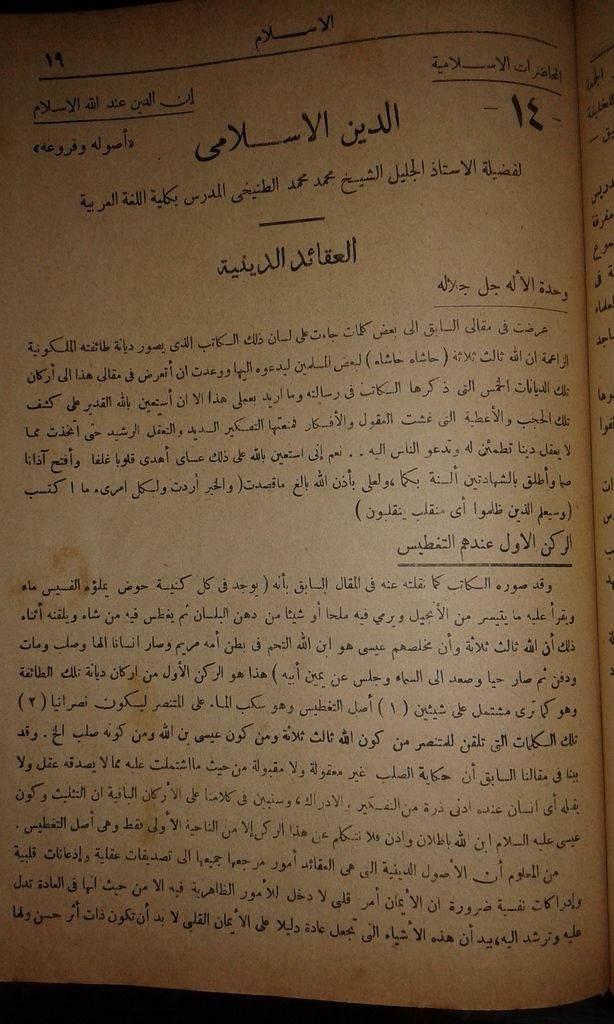 الاسلام
١٩
المحاضرات الاسلامية
- ١٤ -
إن الدين عند الله الاسلام
الدين الاسلامى
«أصوله وفروعه»
لفضيلة الاستاذ الجليل الشيخ محمد محمد الطنيخى المدرس بكلية اللغة العربية
العقائد الدينية
وحدة الأله جل جلاله
عرضت فى مقالى السابق الى بعض كلمات جاءت على لسان ذلك الكاتب الذى يصور ديانة طائفته الملكونية
الزاعمة ان الله ثالث ثلاثة ( حاشاه حاشاه ) لبعض المسلمين ليدعوه اليها ووعدت ان أتعرض فى مقالى هذا الى أركان
تلك الديانات الخمس التى ذكرها الكاتب فى رسالته وما اريد بعملى هذا الا ان أستعين بالله القدير على كشف
تلك الحجب والأغطية التى غشت العقول والأفكار فمنعتها التفكير السديد والتعقل الرشيد حتى اتخذت مما
لا يعقل دينا تطمئن له وتدعو الناس اليه . . نعم إنى استعين بالله على ذلك عساى أهدى قلوبا غلفا وأفتح آذانا
صما وأطلق بالشهادتين ألسنة بكما ، ولعلى بأذن الله بالغ ماقصدت ( والخير أردت ولكل امرىء ما اكتسب
( وسيعلم الذين ظلموا أى منقلب ينقلبون )
الركن الاول عندهم التغطيس
وقد صوره الكاتب كما نقلته عنه فى المقال السابق بأنه ( يوجد فى كل كنيسة حوض يملؤه القسيس ماء
ويقرأ عليه ما يتيسر من الأنجيل ويرمي فيه ملحا أو شيئا من دهن البلسان ثم يغطس فيه من شاء ويلقنه أثناء
ذلك أن الله ثالث ثلاثة وأن مخلصهم عيسى هو ابن الله التحم فى بطن أمه مريم وسار انسانا الها وصلب ومات
ودفن ثم صار حيا وصعد الى السماء وجلس عن يمين أبيه ) هذا هو الركن الأول من اركان ديانة تلك الطائفة
وهو كما ترى مشتمل على شيئين ( ١ ) أصل التغطيس وهو سكب الماء على المتنصر ليكون نصرانيا ( ٢ )
تلك الكلمات التى تلقن للمتنصر من كون الله ثالث ثلاثة ومن كون عيسى بن الله ومن كونه صلب الخ . وقد
بينا فى مقالنا السابق أن حكاية الصلب غير معقولة ولا مقبولة من حيث مااشتملت عليه مما لا يصدقه عقل ولا
يقبله أى انسان عنده ادنى ذرة من التفكير والادراك ، وسنبين فى كلامنا على الأركان الباقية ان التثليث وكون
عيسى عليه السلام ابن الله باطلان واذن فلا نتكلم عن هذا الركن إلا من الناحية الأولى فقط وهى أصل التغطيس .
من المعلوم أن الأصول الدينية التى هى العقائد أمور مرجعها جميعها الى تصديقات عقلية وإذعانات قلبية
وإدراكات نفسية ضرورة ان الأيمان أمر قلبى لا دخل للأمور الظاهرية فيه الا من حيث انها فى العادة تدل
عليه وترشد اليه ، بيد أن هذه الأشياء التى تجعل عادة دليلا على الأيمان القلبى لا بد أن تكون ذات أثر حسن ولها